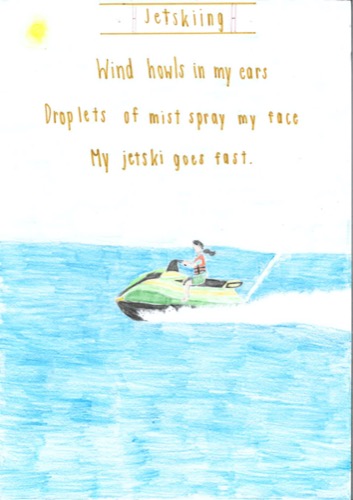 Jetskiing
Wind howls in my ears
Droplets of mist spray my face
My jetski goes fast.